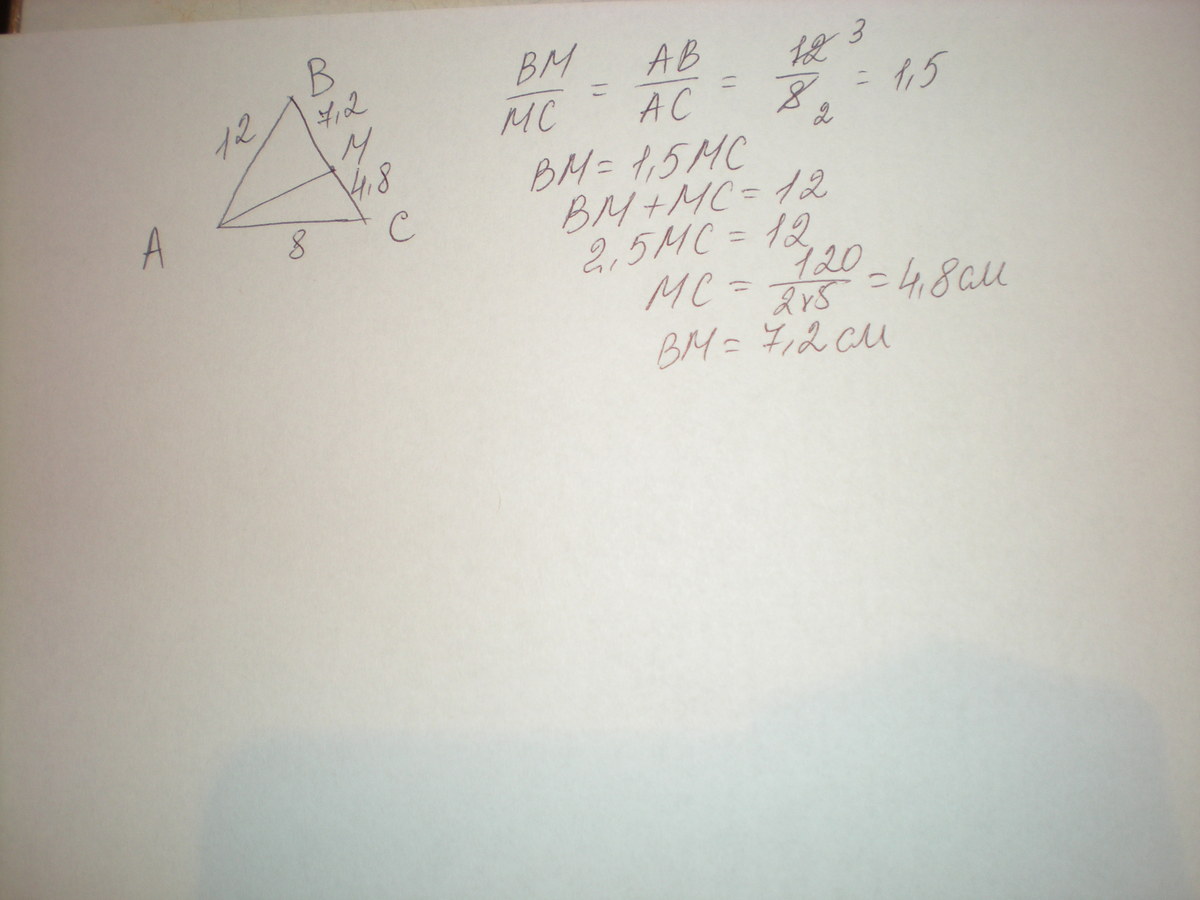 B
12
7,2
M
4,8
A
8
C
BM/MC = AB/AC = 12 3/8 2 = 1,5
BM = 1,5MC
BM + MC = 12
2,5MC = 12
MC = 120/25 = 4,8 см
BM = 7,2 см